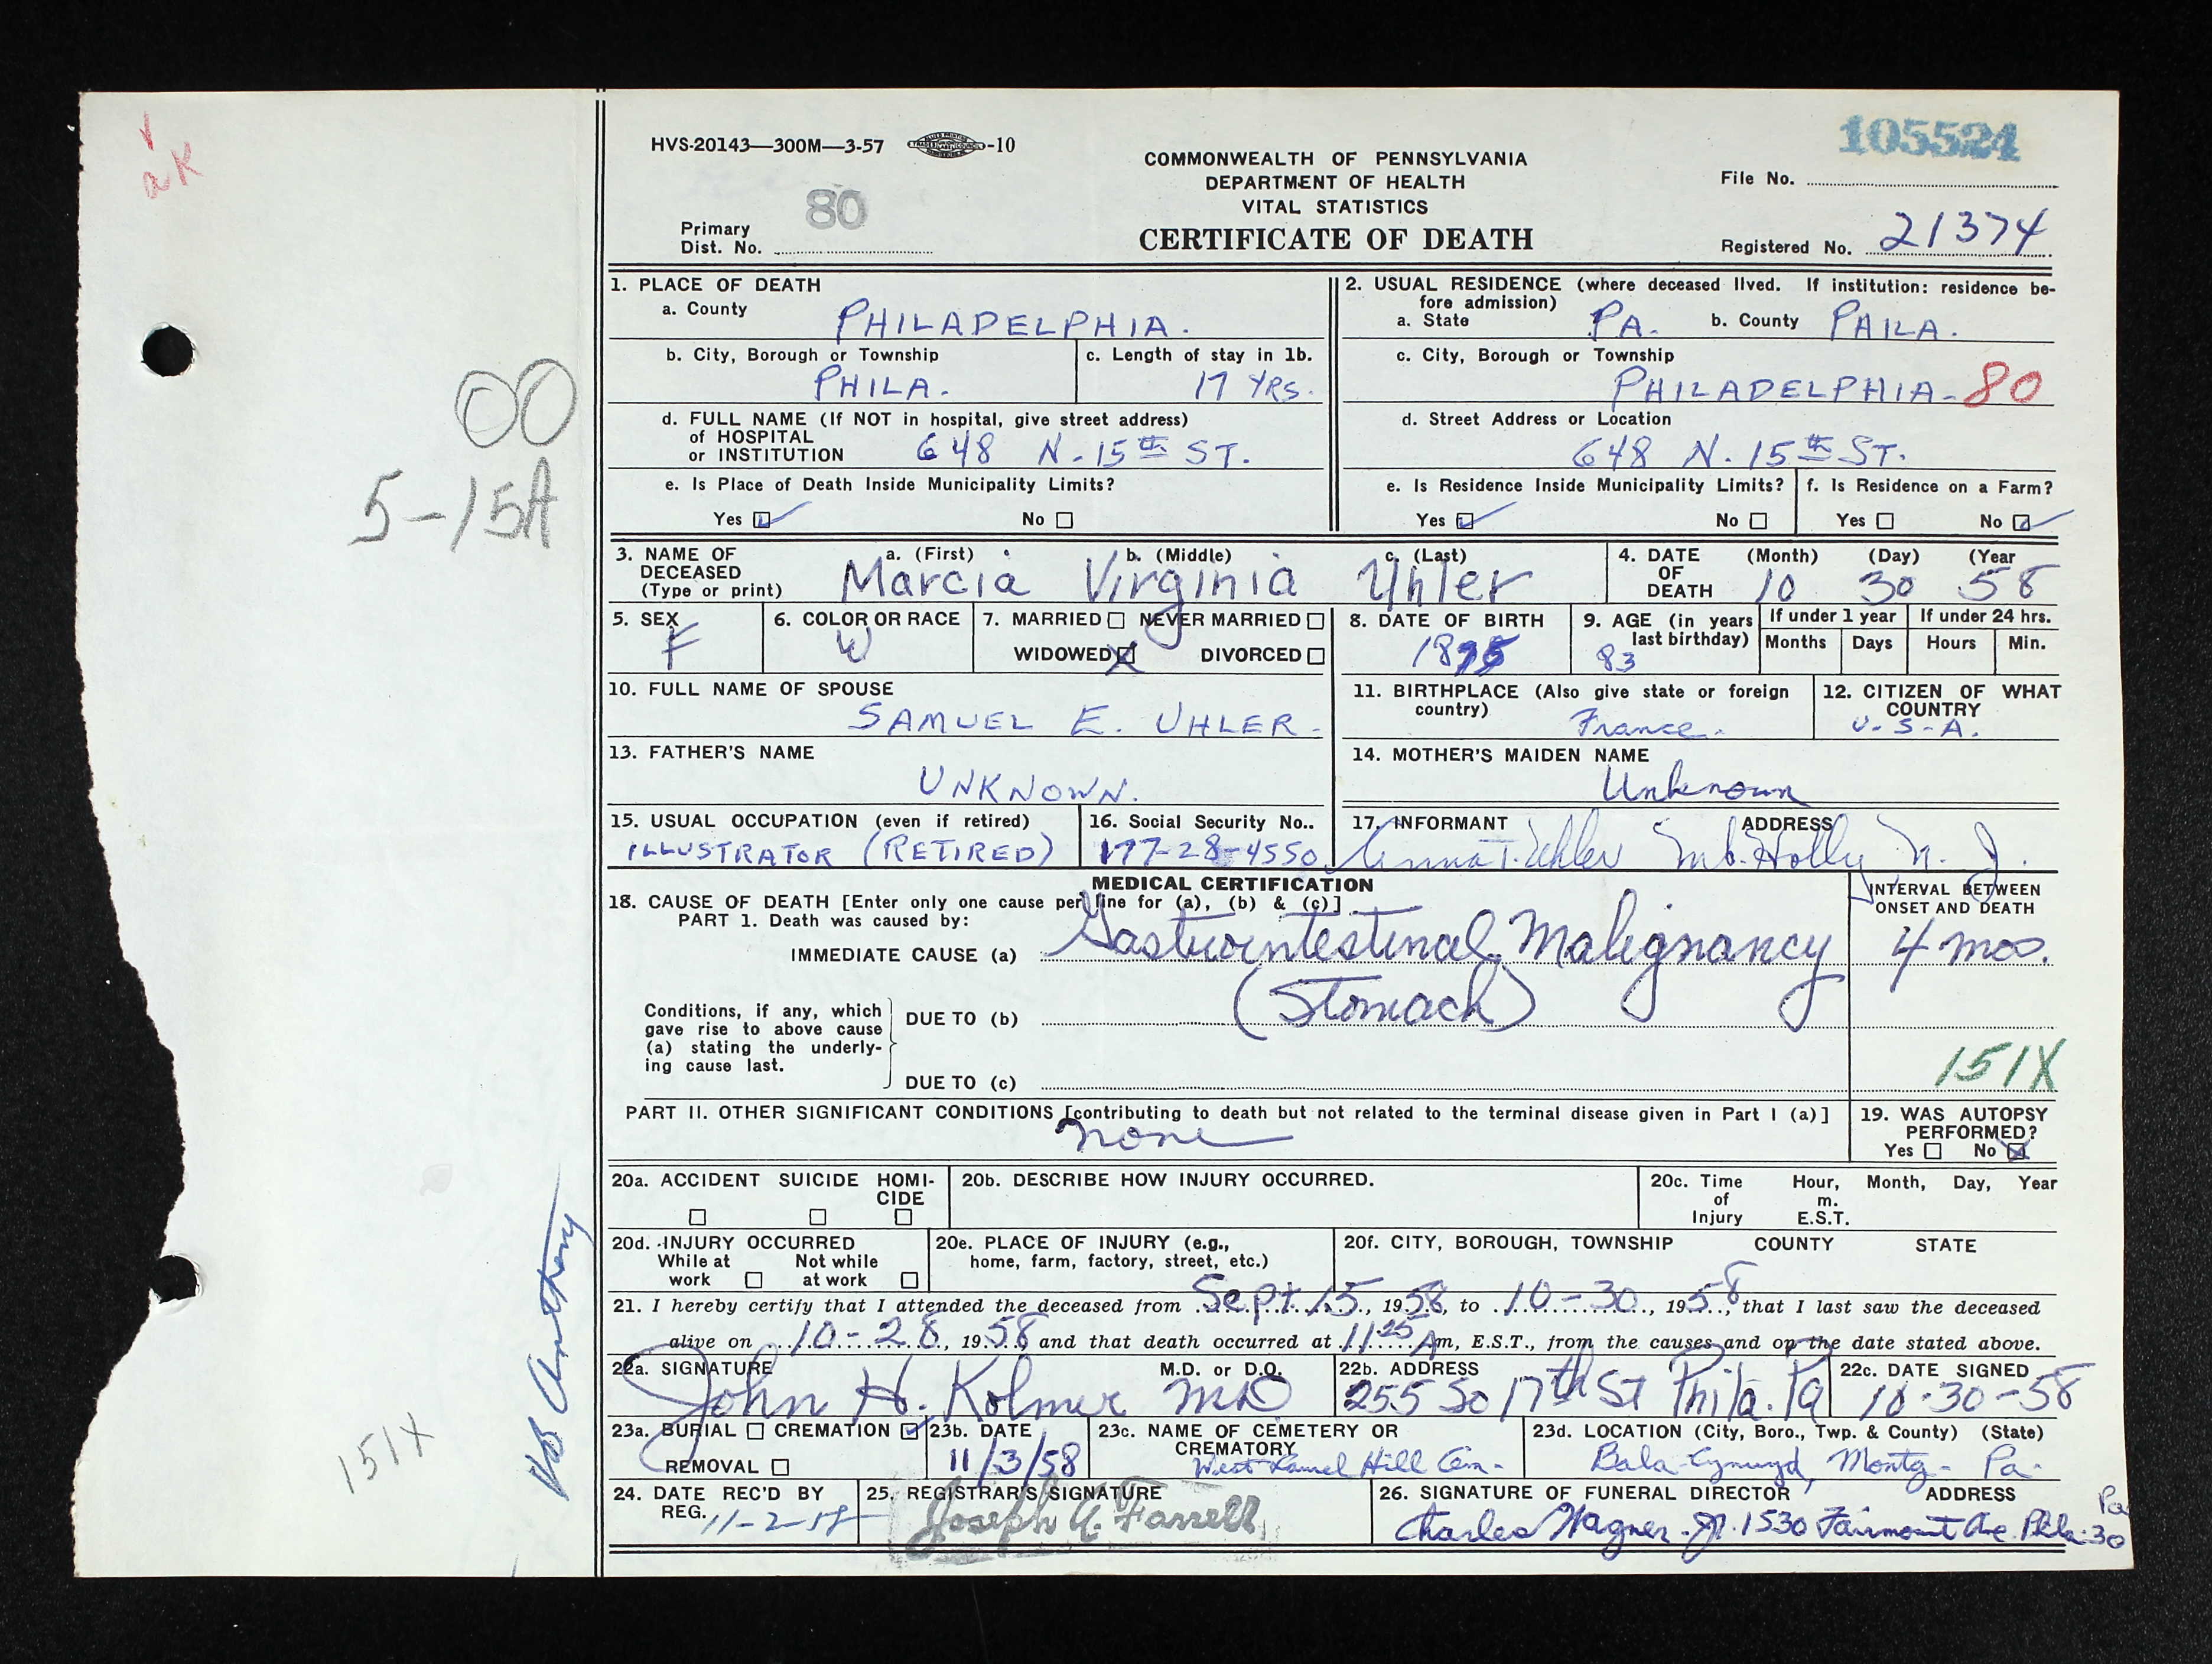 aK
HVS-20143—300M—3-57 -10
105524
COMMONWEALTH OF PENNSYLVANIA
DEPARTMENT OF HEALTH
VITAL STATISTICS
CERTIFICATE OF DEATH
File No.
Primary
Dist. No. 80
Registered No. 21374
1. PLACE OF DEATH
a. County PHILADELPHIA.
b. City, Borough or Township PHILA.
c. Length of stay in 1b. 17 YRS.
d. FULL NAME (If NOT in hospital, give street address)
of HOSPITAL
or INSTITUTION 648 N. 15th ST.
e. Is Place of Death Inside Municipality Limits?
Yes No
2. USUAL RESIDENCE (where deceased lived. If institution: residence be-
fore admission)
a. State PA. b. County PHILA.
c. City, Borough or Township
PHILADELPHIA- 80
d. Street Address or Location
648 N. 15th ST.
e. Is Residence Inside Municipality Limits? f. Is Residence on a Farm?
Yes No Yes No
00
5-15A
3. NAME OF
DECEASED
(Type or print)
a. (First) b. (Middle) c. (Last)
Marcia Virginia Uhler
4. DATE
OF
DEATH
(Month) (Day) (Year
10 30 58
5. SEX F
6. COLOR OR RACE W
7. MARRIED NEVER MARRIED
WIDOWED DIVORCED
8. DATE OF BIRTH 1875
9. AGE (in years
last birthday) 83
If under 1 year If under 24 hrs.
Months Days Hours Min.
10. FULL NAME OF SPOUSE
SAMUEL E. UHLER.
11. BIRTHPLACE (Also give state or foreign
country) France.
12. CITIZEN OF WHAT
COUNTRY
U.S.A.
13. FATHER'S NAME
UNKNOWN.
14. MOTHER'S MAIDEN NAME
Unknown
15. USUAL OCCUPATION (even if retired)
ILLUSTRATOR (RETIRED)
16. Social Security No..
177-28-4550
17. INFORMANT ADDRESS
Anna T. Uhler Mt. Holly N. J.
MEDICAL CERTIFICATION
18. CAUSE OF DEATH [Enter only one cause per line for (a), (b) & (c)]
PART 1. Death was caused by:
INTERVAL BETWEEN
ONSET AND DEATH
IMMEDIATE CAUSE (a) Gastrointestinal Malignancy 4 mos.
(Stomach)
Conditions, if any, which
gave rise to above cause
(a) stating the underly-
ing cause last.
DUE TO (b)
DUE TO (c)
151X
PART II. OTHER SIGNIFICANT CONDITIONS [contributing to death but not related to the terminal disease given in Part I (a)]
none
19. WAS AUTOPSY
PERFORMED?
Yes No
20a. ACCIDENT SUICIDE HOMI-
CIDE
20b. DESCRIBE HOW INJURY OCCURRED.
20c. Time
of
Injury
Hour, Month, Day, Year
m.
E.S.T.
20d. INJURY OCCURRED
While at
work
Not while
at work
20e. PLACE OF INJURY (e.g.,
home, farm, factory, street, etc.)
20f. CITY, BOROUGH, TOWNSHIP COUNTY STATE
21. I hereby certify that I attended the deceased from Sept. 15, 1958, to 10-30, 1958, that I last saw the deceased
alive on 10-28, 1958, and that death occurred at 11:25 Am, E.S.T., from the causes and on the date stated above.
22a. SIGNATURE M.D. or D.O.
John H. Kolmer MD
22b. ADDRESS
255 So 17th St Phila. Pa
22c. DATE SIGNED
10-30-58
23a. BURIAL CREMATION
REMOVAL
23b. DATE
11/3/58
23c. NAME OF CEMETERY OR
CREMATORY
West Laurel Hill Cem.
23d. LOCATION (City, Boro., Twp. & County) (State)
Bala-Cynwyd, Montg- Pa.
24. DATE REC'D BY
REG. 11-2-58
25. REGISTRAR'S SIGNATURE
Joseph A. Farrell
26. SIGNATURE OF FUNERAL DIRECTOR ADDRESS
Charles Wagner Jr. 1530 Fairmount Ave. Phila. 30 Pa
151X
Anthony